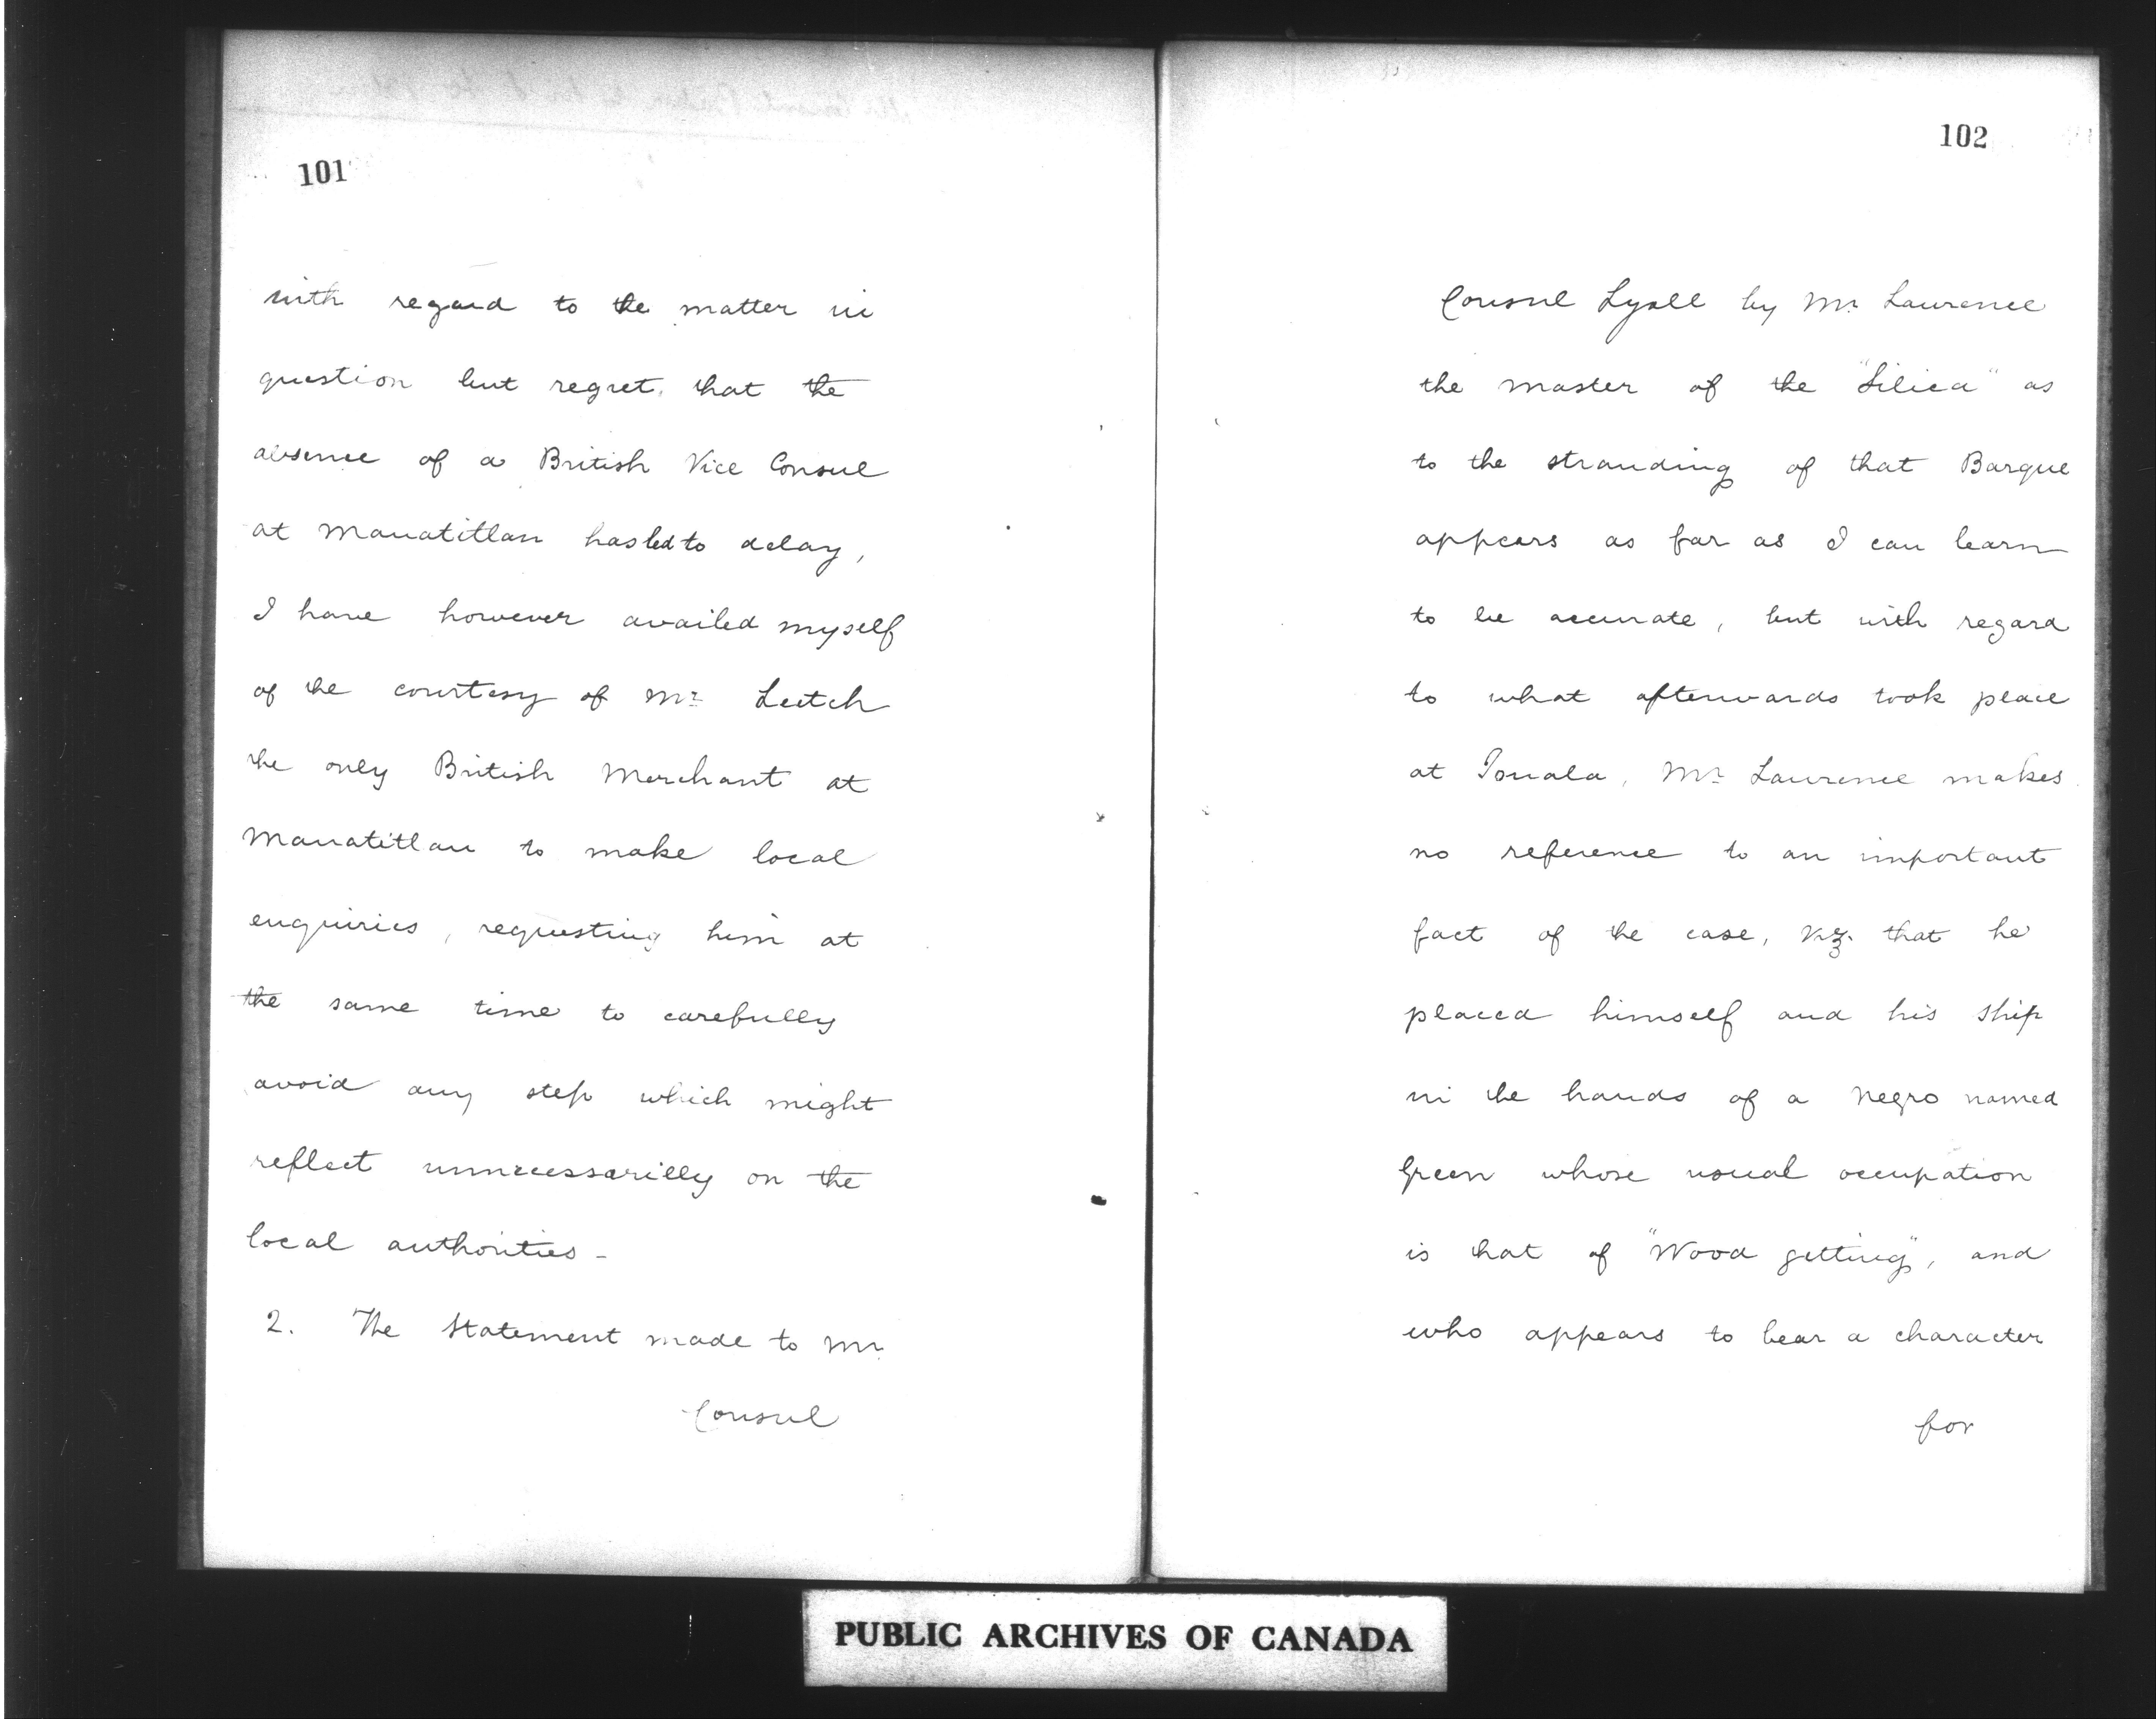 101
with regard to the matter in
question but regret, that the
absence of a British Vice Consul
at Manatitlan has led to delay,
I have however availed myself
of the courtesy of Mr Leetch
the only British Merchant at
Manatitlan to make local
enquiries, requesting him at
the same time to carefully
avoid any step which might
reflect unnecessarilly on the
local authorities -
2. The Statement made to Mr
Consul
102
Consul Lyall by Mr. Laurence
the master of the "Silica" as
to the stranding of that Barque
appears as far as I can learn
to be accurate, but with regard
to what afterwards took place
at Tonala, Mr Laurence makes
no reference to an important
fact of the case, viz. that he
placed himself and his ship
in the hands of a Negro named
Green whose usual occupation
is that of "Wood getting", and
who appears to bear a character
for
PUBLIC ARCHIVES OF CANADA